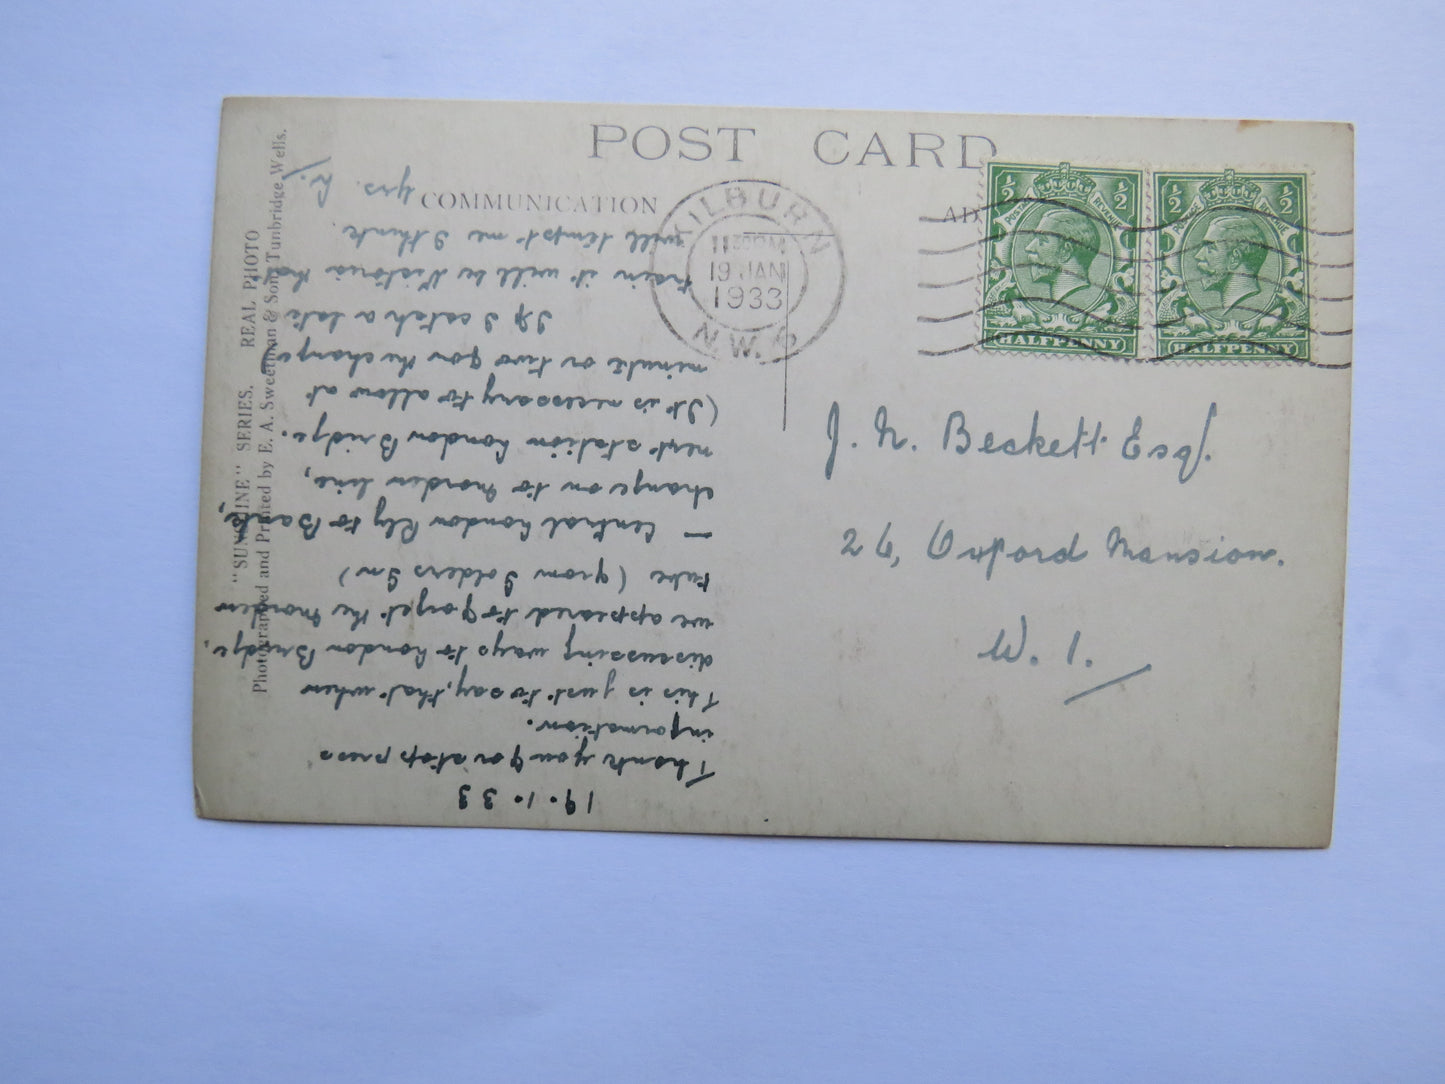 POST CARD
COMMUNICATION
AD
KILBURN
11 30 PM
19 JAN
1933
N.W.6
½ ½
POSTAGE REVENUE
HALFPENNY
½ ½
POSTAGE REVENUE
HALFPENNY
J. N. Beckett Esq.
26, Oxford Mansion.
W. 1.
19.1.33
Thank you for stop press
information.
This is just to say, that when
discussing ways to London Bridge,
we appeared to forget the Morden
tube (from Golders Gn)
— Central London Rly to Bank,
change on to Morden line,
next station London Bridge.
(It is necessary to allow at
minute or two for the change
If I catch a late
train it will be Victoria that
will tempt me I think
yrs. R.
"SUNSHINE" SERIES. REAL PHOTO
Photographed and Printed by E. A. Sweetman & Son, Tunbridge Wells.